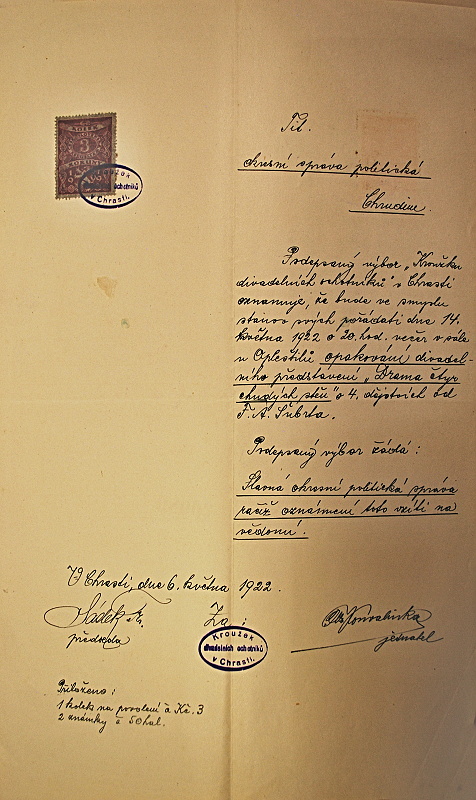 Tit.
okresní správa politická
Chrudim.
Podepsaný výbor „Kroužku
divadelních ochotníků" v Chrasti
oznamuje, že bude ve smyslu
stanov svých pořádati dne 14.
května 1922 o 20. hod. večer v sále
u Opleštilů opakování divadel-
ního představení „Drama čtyř
chudých stěn" o 4. dějstvích od
F. A. Šubrta.
Podepsaný výbor žádá:
Slavná okresní politická správa
račiž oznámení toto vzíti na
vědomí.
V Chrasti, dne 6. května 1922.
Sádek
Za:
předseda
jednatel
Kroužek
divadelních ochotníků
v Chrasti.
Přiloženo:
1 kolek na povolení à Kč. 3
2 známky à 50 hal.
3
Kroužek
divadelních ochotníků
v Chrasti.